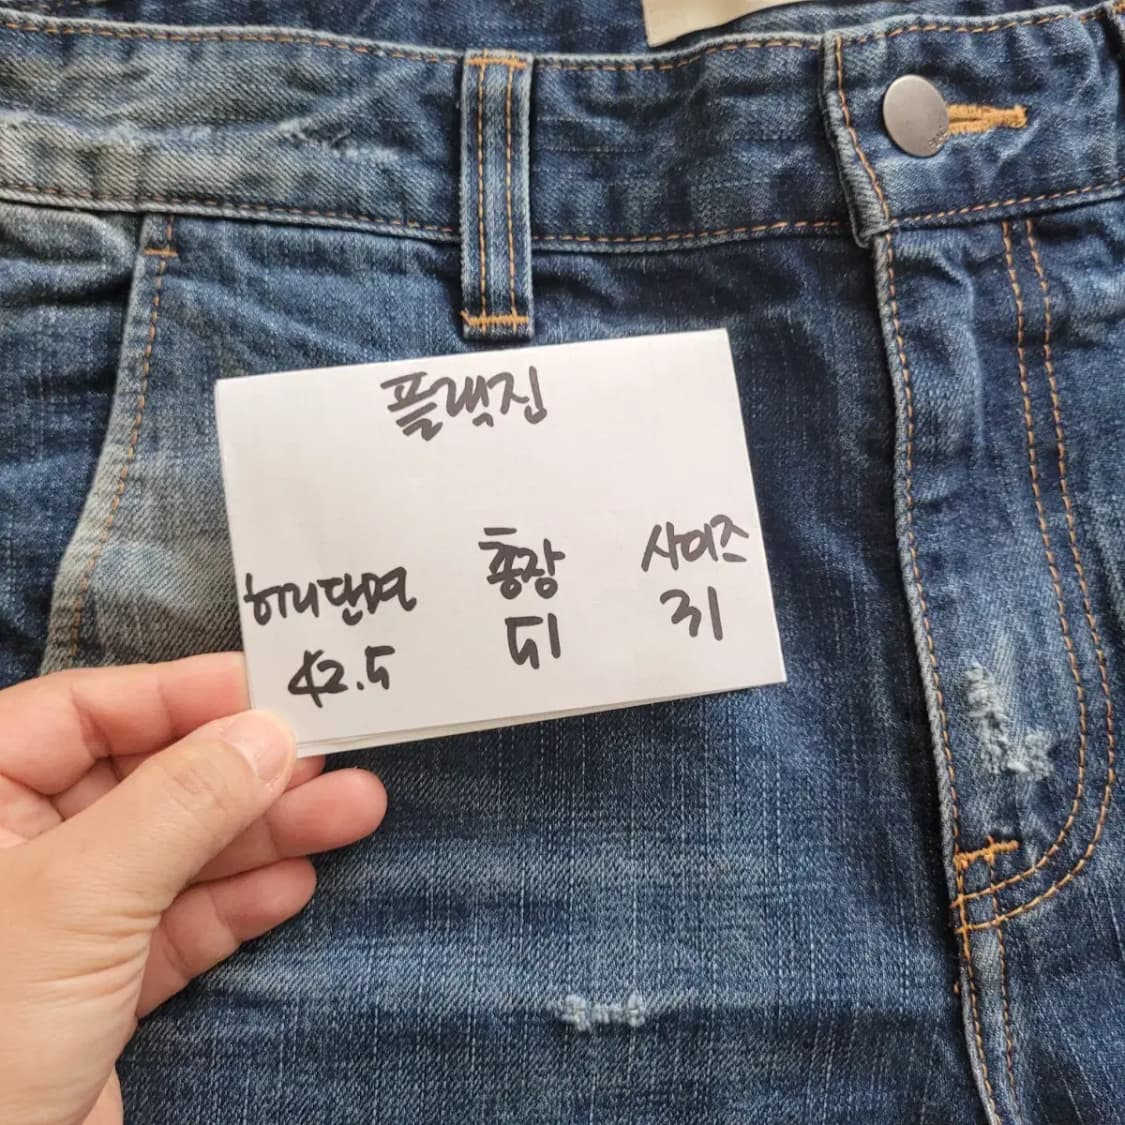 플랙진
허리단면 총장 사이즈
42.5 51 31